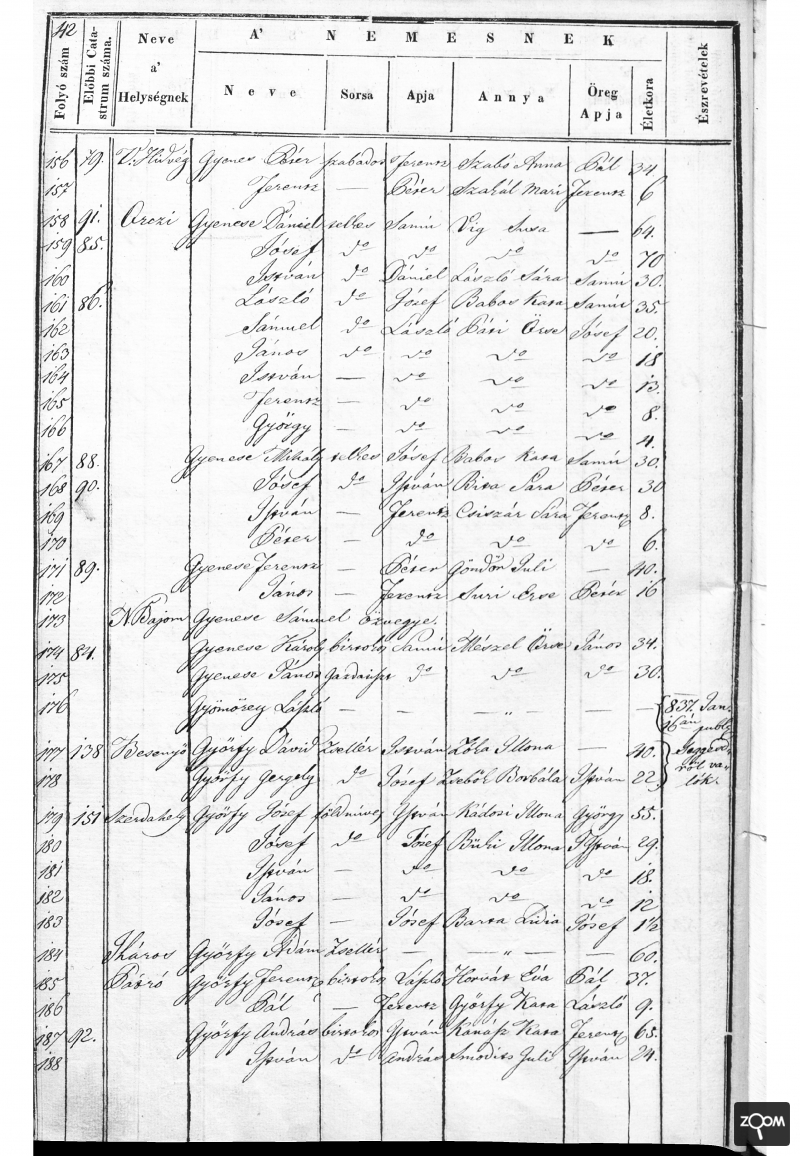 42
Folyó szám Előbbi Catastrum száma. Neve a' Helységnek A' NEMESNEK Észrevételek
Neve Sorsa Apja Annya Öreg Apja Életkora
156 79. V. Hidvég Gyenes Péter szabados Ferentz Szabó Anna Pál 34
157 Ferentz — Péter Szakál Mari Ferentz 6
158 91. Orczi Gyenese Dániel telkes Samu Vig Susa — 64.
159 85. Jósef do do do do 70
160 István do Dániel László Sára Samu 30.
161 86. László do Jósef Babos Kata Samu 35
162 Sámuel do László Páti Örse Jósef 20.
163 János do do do do 18
164 István — do do do 13.
165 Ferentz — do do do 8.
166 György — do do do 4.
167 88. Gyenese Mihály telkes Jósef Babos Kata Samu 30.
168 90. Jósef do István Bita Sára Péter 30
169 István — Ferentz Csiszár Sára Ferentz 8.
170 Péter — do do do 6.
171 89. Gyenese Ferentz — Péter Göndör Juli — 40.
172 János — Ferentz Suri Erse Péter 16
173 N Bajom Gyenese Sámuel özvegye.
174 84. Gyenese Károly birtokos Samu Mészel Örse János 34.
175 Gyenese János do do do 30.
176 Gyömörey László — — — — — 837. Jan. 16án publ.
177 138 Besenyő Györfy Dávid Zsellér István Zóka Illona — 40.
178 Györfy Gergely do Jósef Borbála István 22 valók.
179 151 Szerdahely Györfy Jósef földmives István Kádosi Illona György 55.
180 Jósef do Jósef Büki Illona István 29.
181 István — do do do 18.
182 János — do do do 12
183 Jósef — Jósef Barta Lidia Jósef 1½
184 Iháros Györfy Ádám Zsellér — — — 60.
185 Pátró Györfy Ferentz birtokos László Horvát Éva Pál 37.
186 Pál — Ferentz Györfy Kata László 9.
187 92. Györfy András birtokos István Kanász Kata Ferentz 65.
188 István do András Smodits Juli István 24.
ZOOM